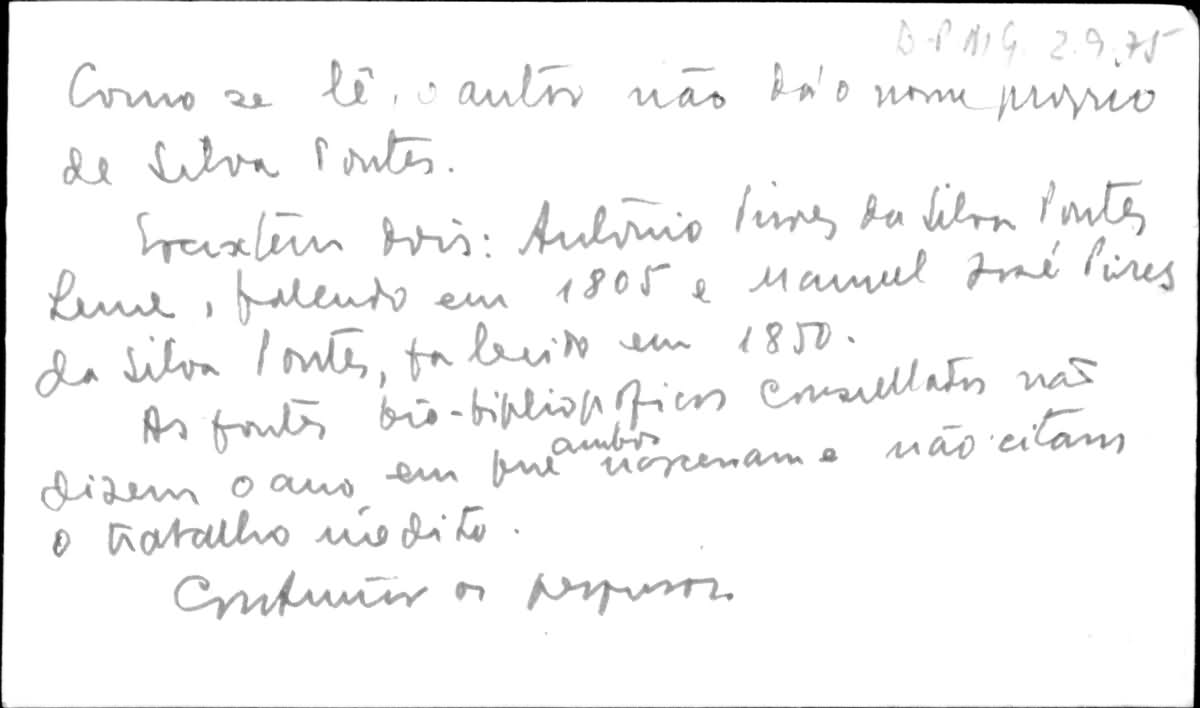 D.P.M.G. 2.9.75
Como se lê, o autor não dá o nome próprio
de Silva Pontes.
Existem dois: Antônio Pires da Silva Pontes
Leme, falecido em 1805 e Manuel José Pires
da Silva Pontes, falecido em 1850.
As fontes bio-bibliográficas consultadas não
dizem o ano em que ambos nasceram e não citam
o trabalho inédito.
Continuar as pesquisas